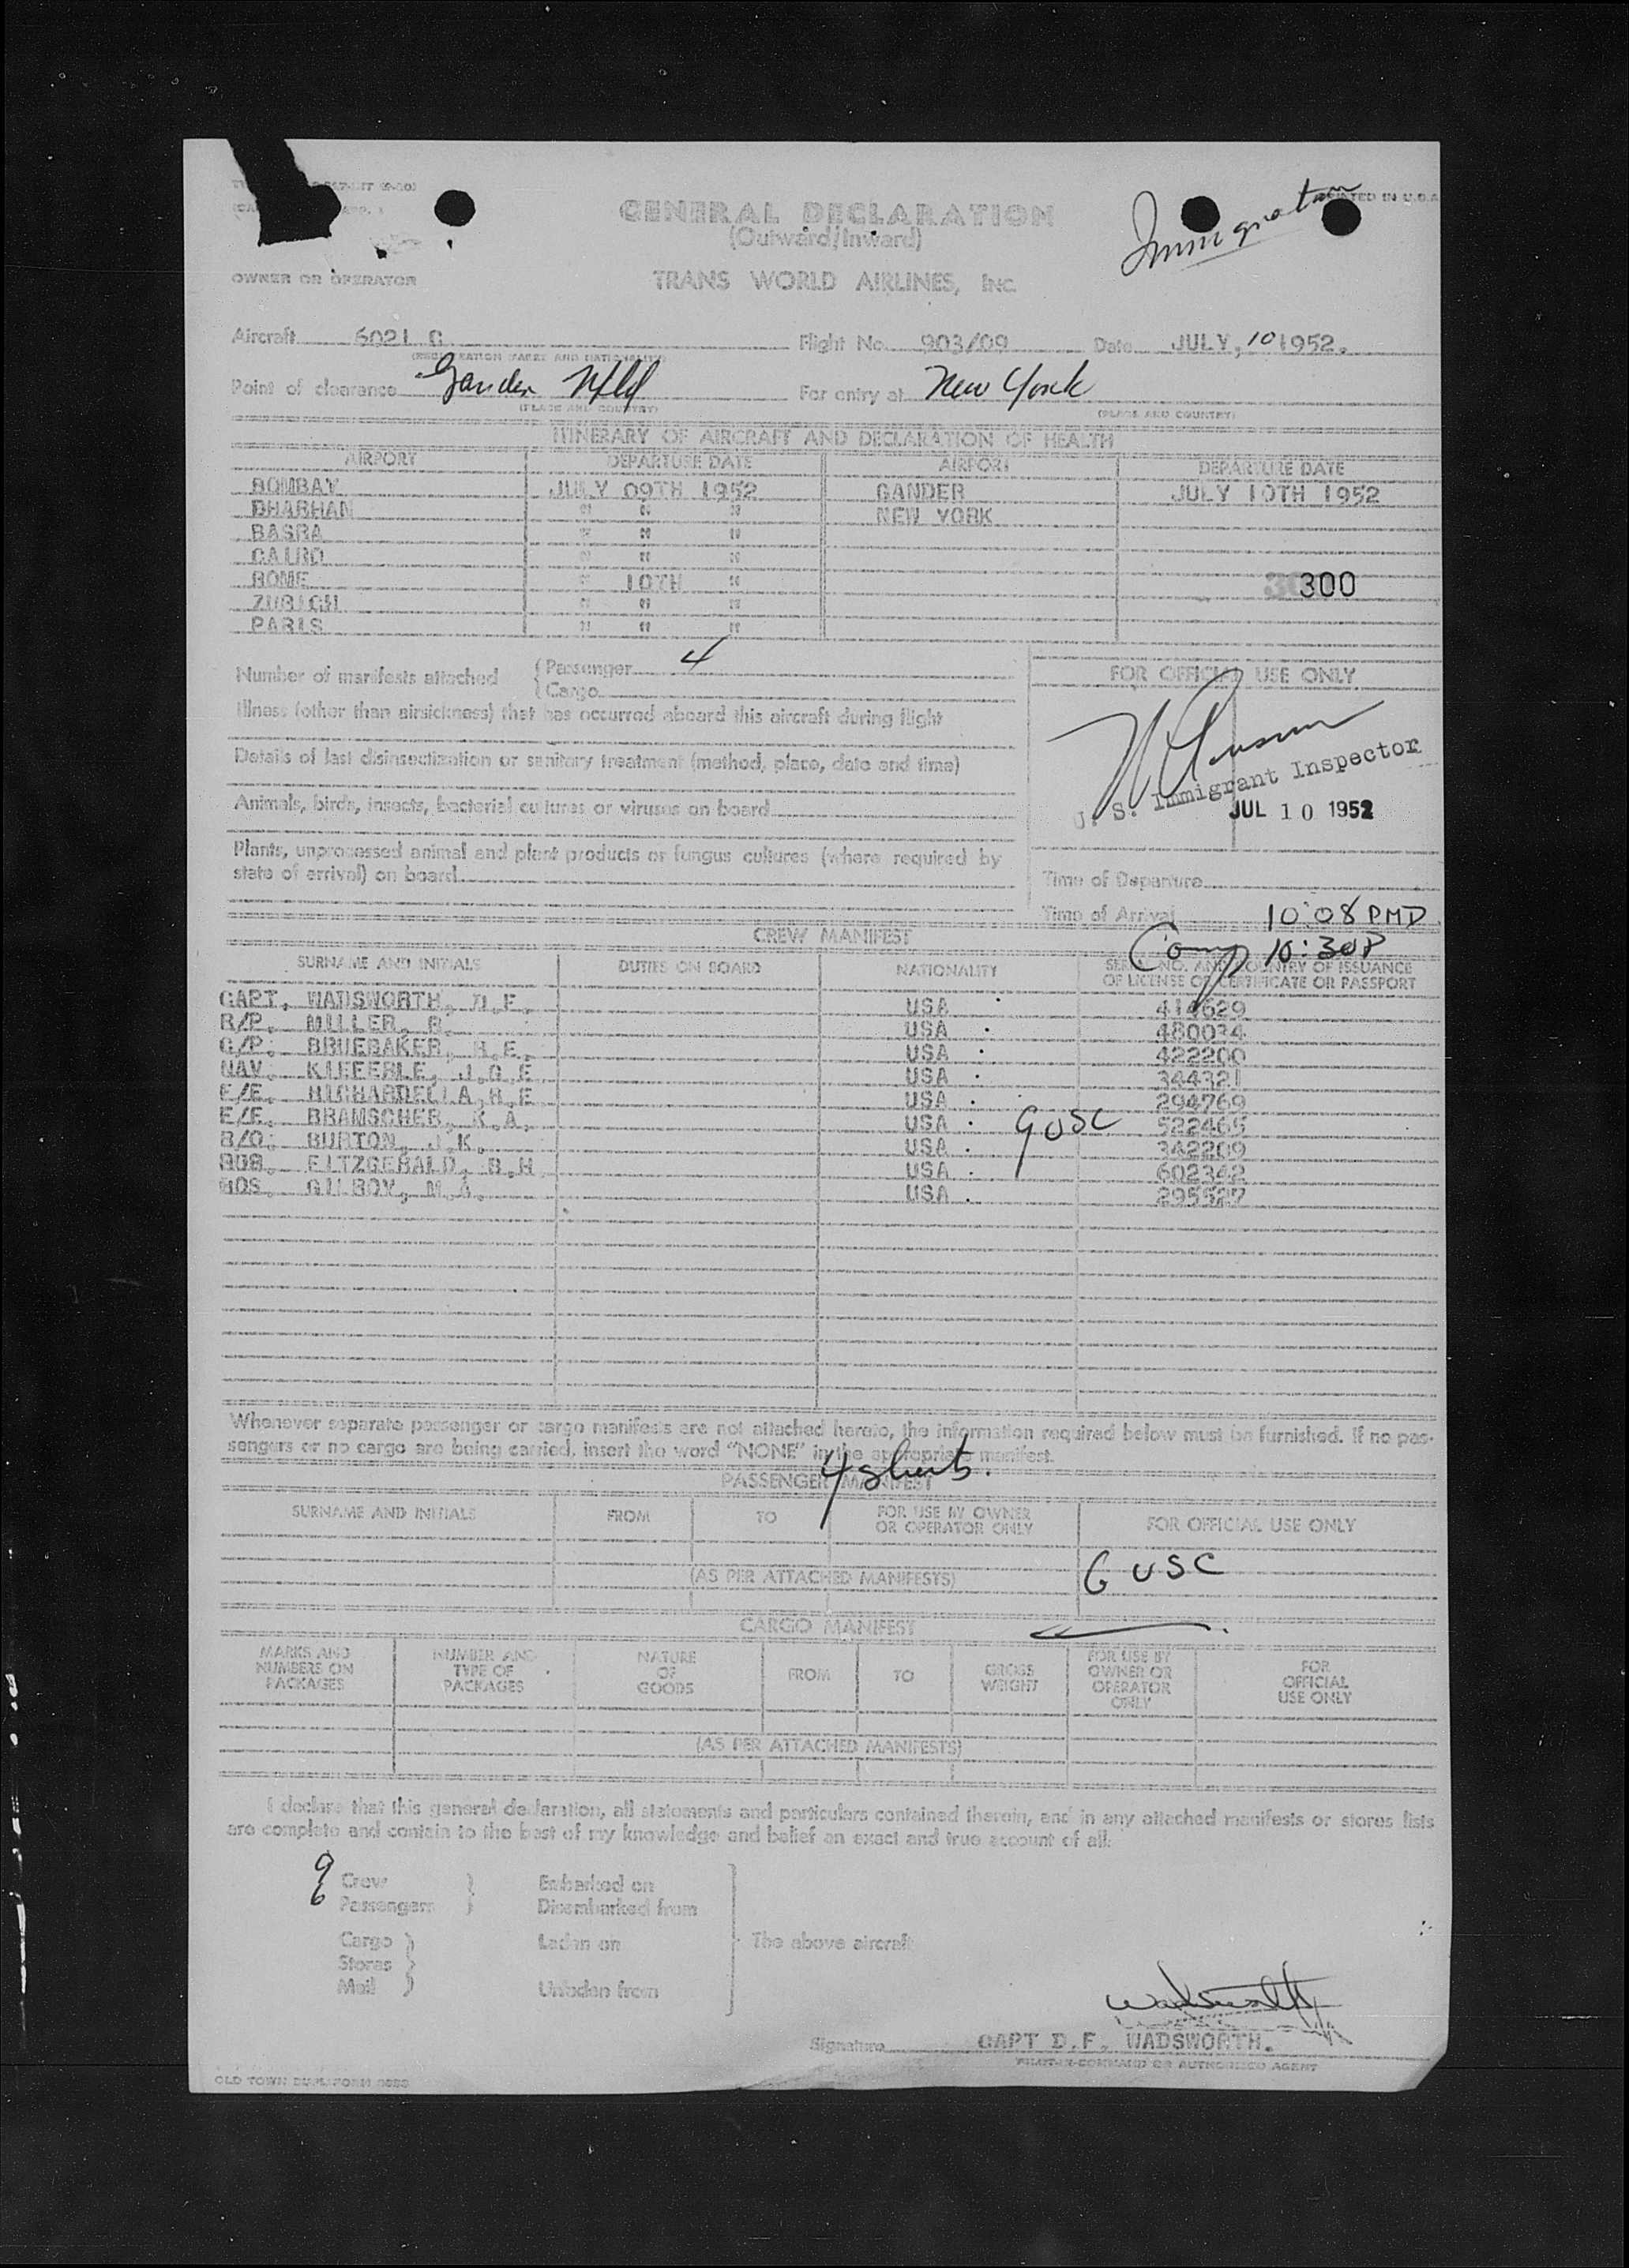 Immigration
PRINTED IN U.S.A.
GENERAL DECLARATION
(Outward/Inward)
OWNER OR OPERATOR TRANS WORLD AIRLINES, Inc.
Aircraft 6021 C Flight No. 903/09 Date JULY, 10 1952.
(REGISTRATION MARKS AND NATIONALITY)
Point of clearance Gander Nfld For entry at New York
(PLACE AND COUNTRY) (PLACE AND COUNTRY)
ITINERARY OF AIRCRAFT AND DECLARATION OF HEALTH
AIRPORT DEPARTURE DATE AIRPORT DEPARTURE DATE
BOMBAY JULY 09TH 1952 GANDER JULY 10TH 1952
DHARHAN " " " NEW YORK
BASRA " " "
CAIRO " " "
ROME " 10TH " 300
ZURICH " " "
PARIS " " "
Number of manifests attached { Passenger 4
{ Cargo
FOR OFFICIAL USE ONLY
Illness (other than airsickness) that has occurred aboard this aircraft during flight
Details of last disinsectization or sanitary treatment (method, place, date and time)
U. S. Immigrant Inspector
Animals, birds, insects, bacterial cultures or viruses on board
JUL 10 1952
Plants, unprocessed animal and plant products or fungus cultures (where required by
state of arrival) on board
Time of Departure
Time of Arrival 10:08 PMD
CREW MANIFEST
Comp 10:30P
SURNAME AND INITIALS DUTIES ON BOARD NATIONALITY SERIAL NO. AND COUNTRY OF ISSUANCE
OF LICENSE OR CERTIFICATE OR PASSPORT
CAPT. WADSWORTH, D.F. USA 414629
R/P. MILLER, R. USA 480034
C/P. BRUEBAKER, H.E. USA 422200
NAV. KIEFERLE, J.G.E USA 344321
F/E. RICHARDELLA,H.E USA 294769
F/E. BRAMSCHER, K.A. USA 9 USC 522465
R/O. BURTON, J.K. USA 342209
FITZGERALD, R.H USA 602342
HOS. GILROY, M.A. USA 295527
Whenever separate passenger or cargo manifests are not attached hereto, the information required below must be furnished. If no pas-
sengers or no cargo are being carried, insert the word "NONE" in the appropriate manifest.
4 sheets.
PASSENGER MANIFEST
SURNAME AND INITIALS FROM TO FOR USE BY OWNER
OR OPERATOR ONLY FOR OFFICIAL USE ONLY
(AS PER ATTACHED MANIFESTS) 6 USC
CARGO MANIFEST
MARKS AND
NUMBERS ON
PACKAGES NUMBER AND
TYPE OF
PACKAGES NATURE
OF
GOODS FROM TO GROSS
WEIGHT FOR USE BY
OWNER OR
OPERATOR
ONLY FOR
OFFICIAL
USE ONLY
(AS PER ATTACHED MANIFESTS)
I declare that this general declaration, all statements and particulars contained therein, and in any attached manifests or stores lists
are complete and contain to the best of my knowledge and belief an exact and true account of all:
9 Crew } Embarked on
6 Passengers } Disembarked from
Cargo } Laden on The above aircraft
Stores }
Mail } Unladen from
Wadsworth
Signature CAPT D.F. WADSWORTH.
PILOT-IN-COMMAND OR AUTHORIZED AGENT